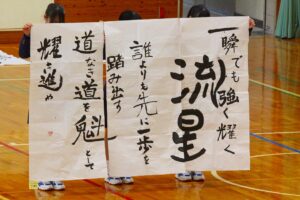 一瞬でも強く耀く
流星
誰よりも先に一歩を
踏み出す
道なき道を魁として
耀き進め